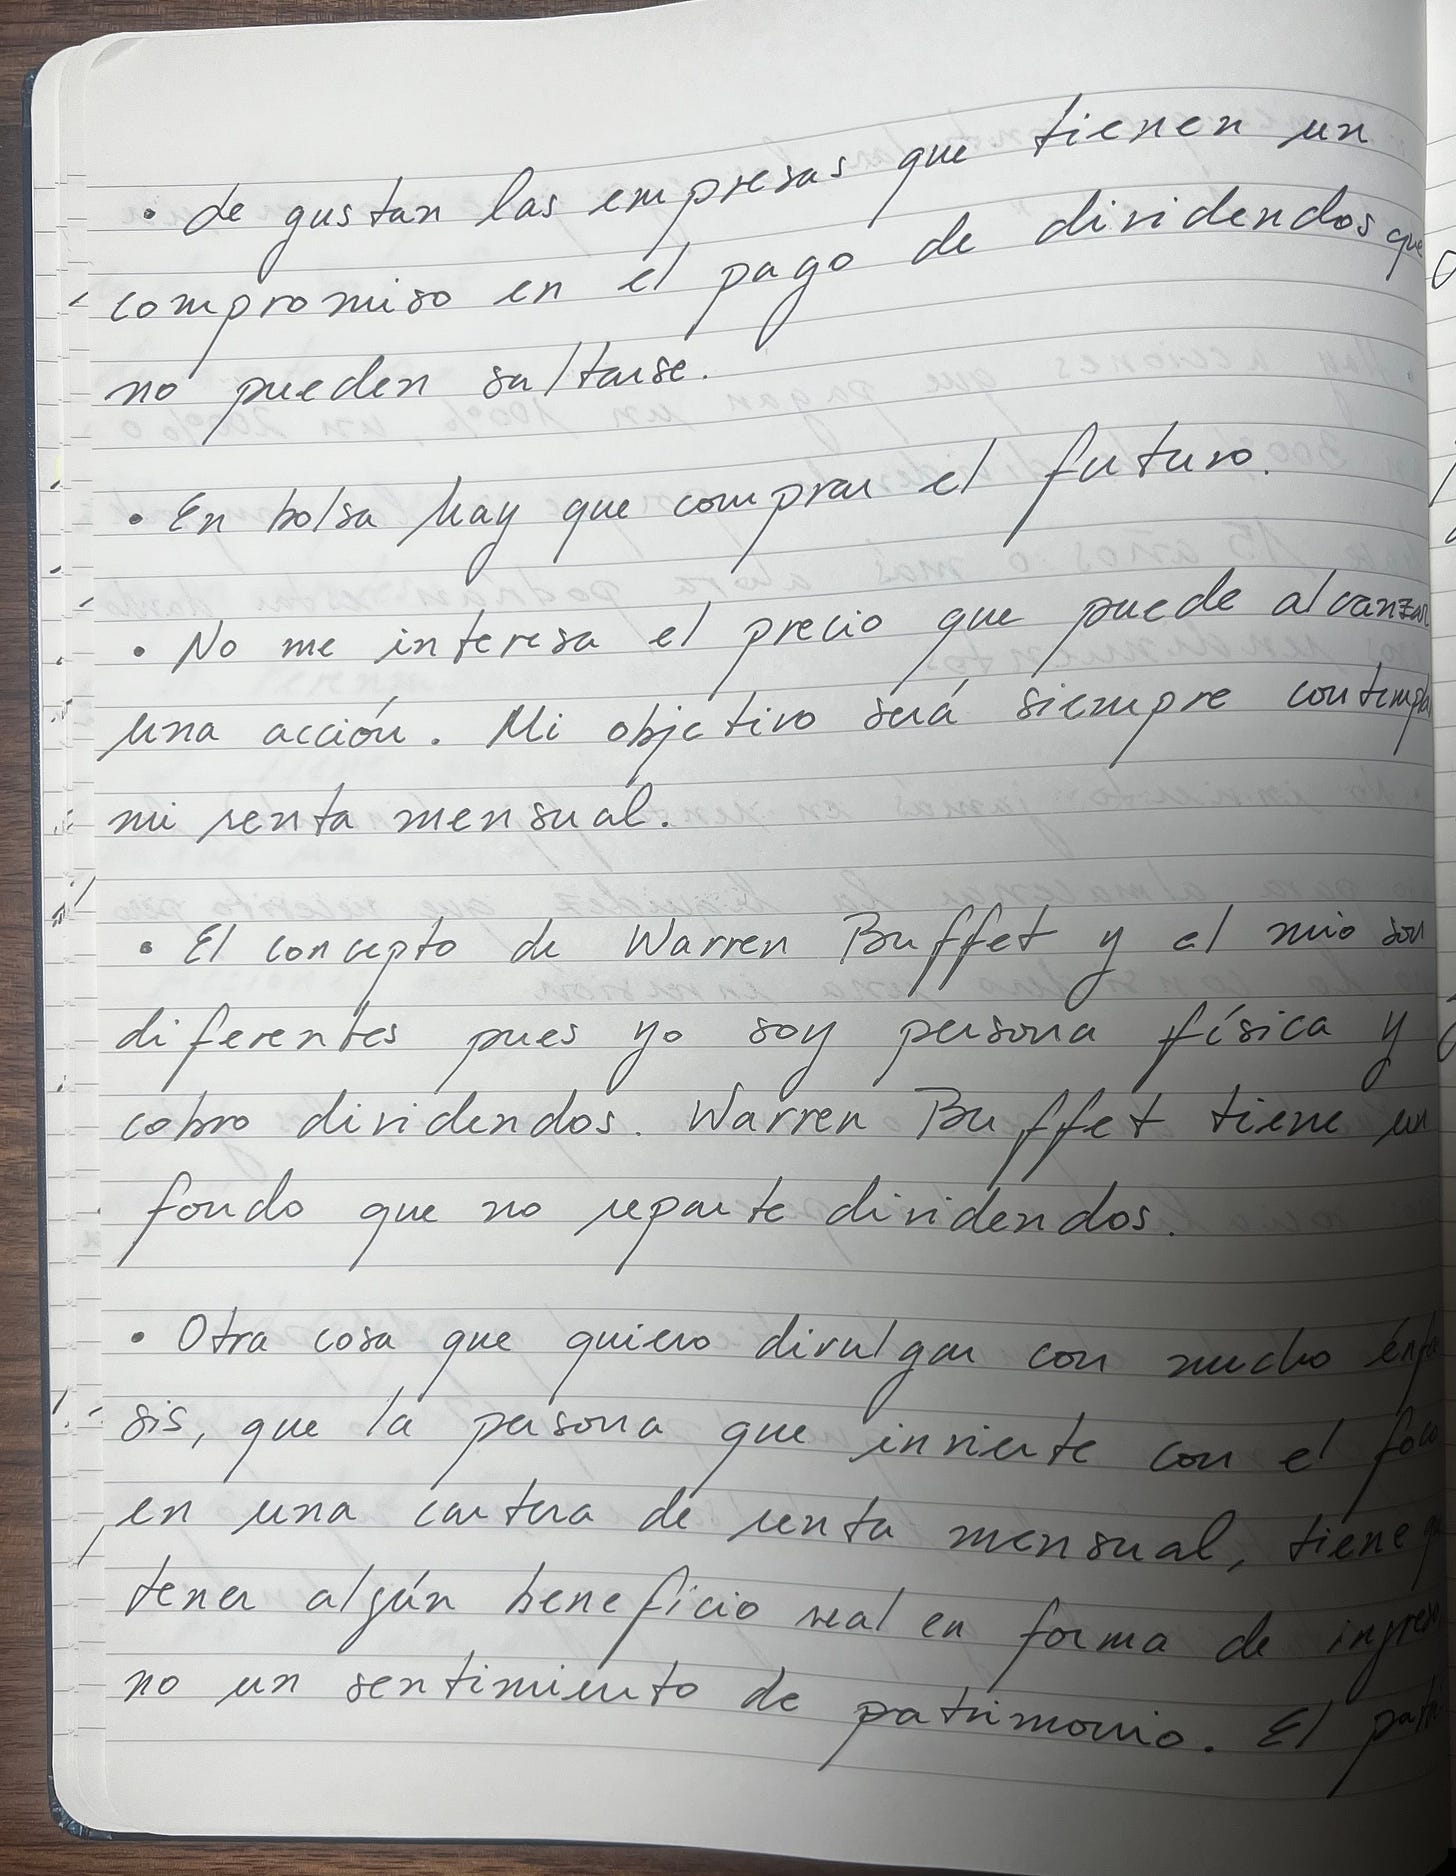 • de gustan las empresas que tienen un
compromiso en el pago de dividendos que
no pueden saltarse.
• En bolsa hay que comprar el futuro.
• No me interesa el precio que puede alcanzar
una acción. Mi objetivo será siempre contempla
mi renta mensual.
• El concepto de Warren Buffet y el mio son
diferentes pues yo soy persona física y
cobro dividendos. Warren Buffet tiene un
fondo que no reparte dividendos.
• Otra cosa que quiero divulgar con mucho énfa
sis, que la persona que invierte con el foco
en una cartera de renta mensual, tiene
tener algún beneficio real en forma de ingreso
no un sentimiento de patrimonio. El